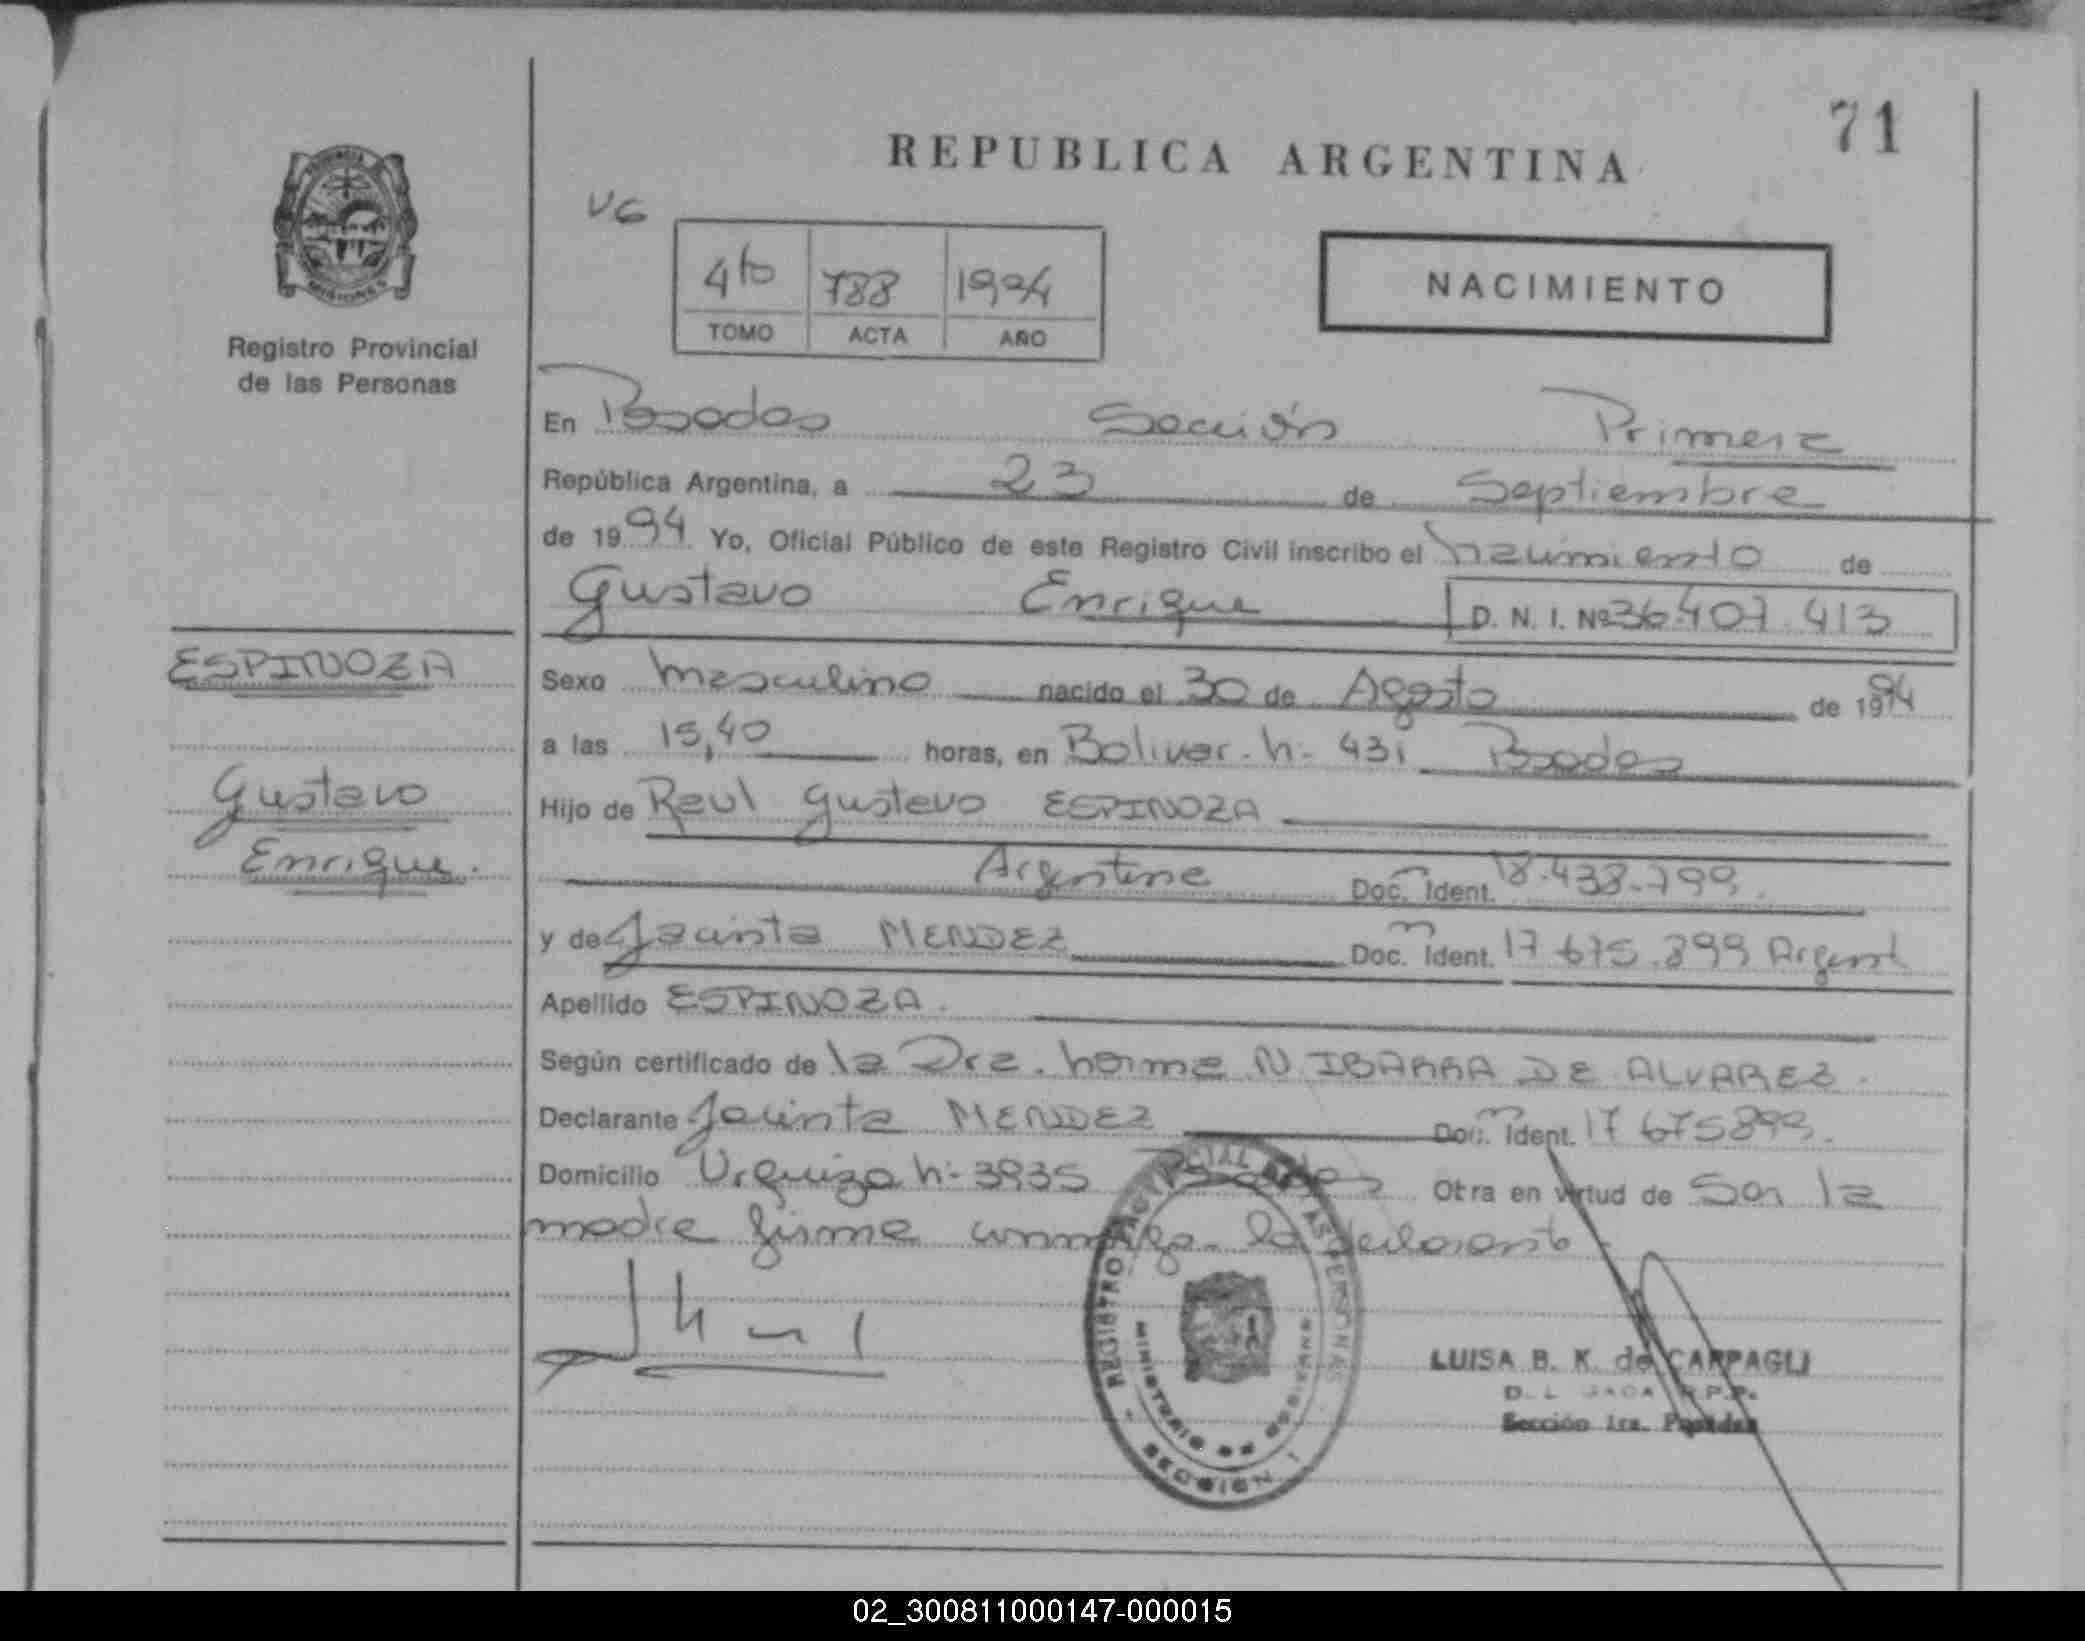 71
REPUBLICA ARGENTINA
VG
4to 788 1994
TOMO ACTA AÑO
NACIMIENTO
Registro Provincial
de las Personas
En Posadas Sección Primera
República Argentina, a 23 de Septiembre
de 1994 Yo, Oficial Público de este Registro Civil inscribo el nacimiento de
Gustavo Enrique D. N. I. Nº 36.407.413
ESPINOZA
Gustavo
Enrique.
Sexo masculino nacido el 30 de Agosto de 1994
a las 15,40 horas, en Bolivar - Nº 431 Posadas
Hijo de Raul Gustavo ESPINOZA
Argentina Doc. Ident. 18.438.799.
y de Jacinta MENDEZ Doc. Ident. 17 675.899 Argent
Apellido ESPINOZA.
Según certificado de la Dra. Norma N. IBARRA DE ALVAREZ.
Declarante Jacinta MENDEZ Doc. Ident. 17 675899.
Domicilio Urquiza Nº 3935 Posadas Otra en virtud de Ser la
madre firma conmigo la declarante
REGISTRO PROVINCIAL DE LAS PERSONAS
MINISTERIO DE GOBIERNO
SECCION 1
LUISA B. K. de CARPAGLI
Sección 1ra. Posadas
02_300811000147-000015